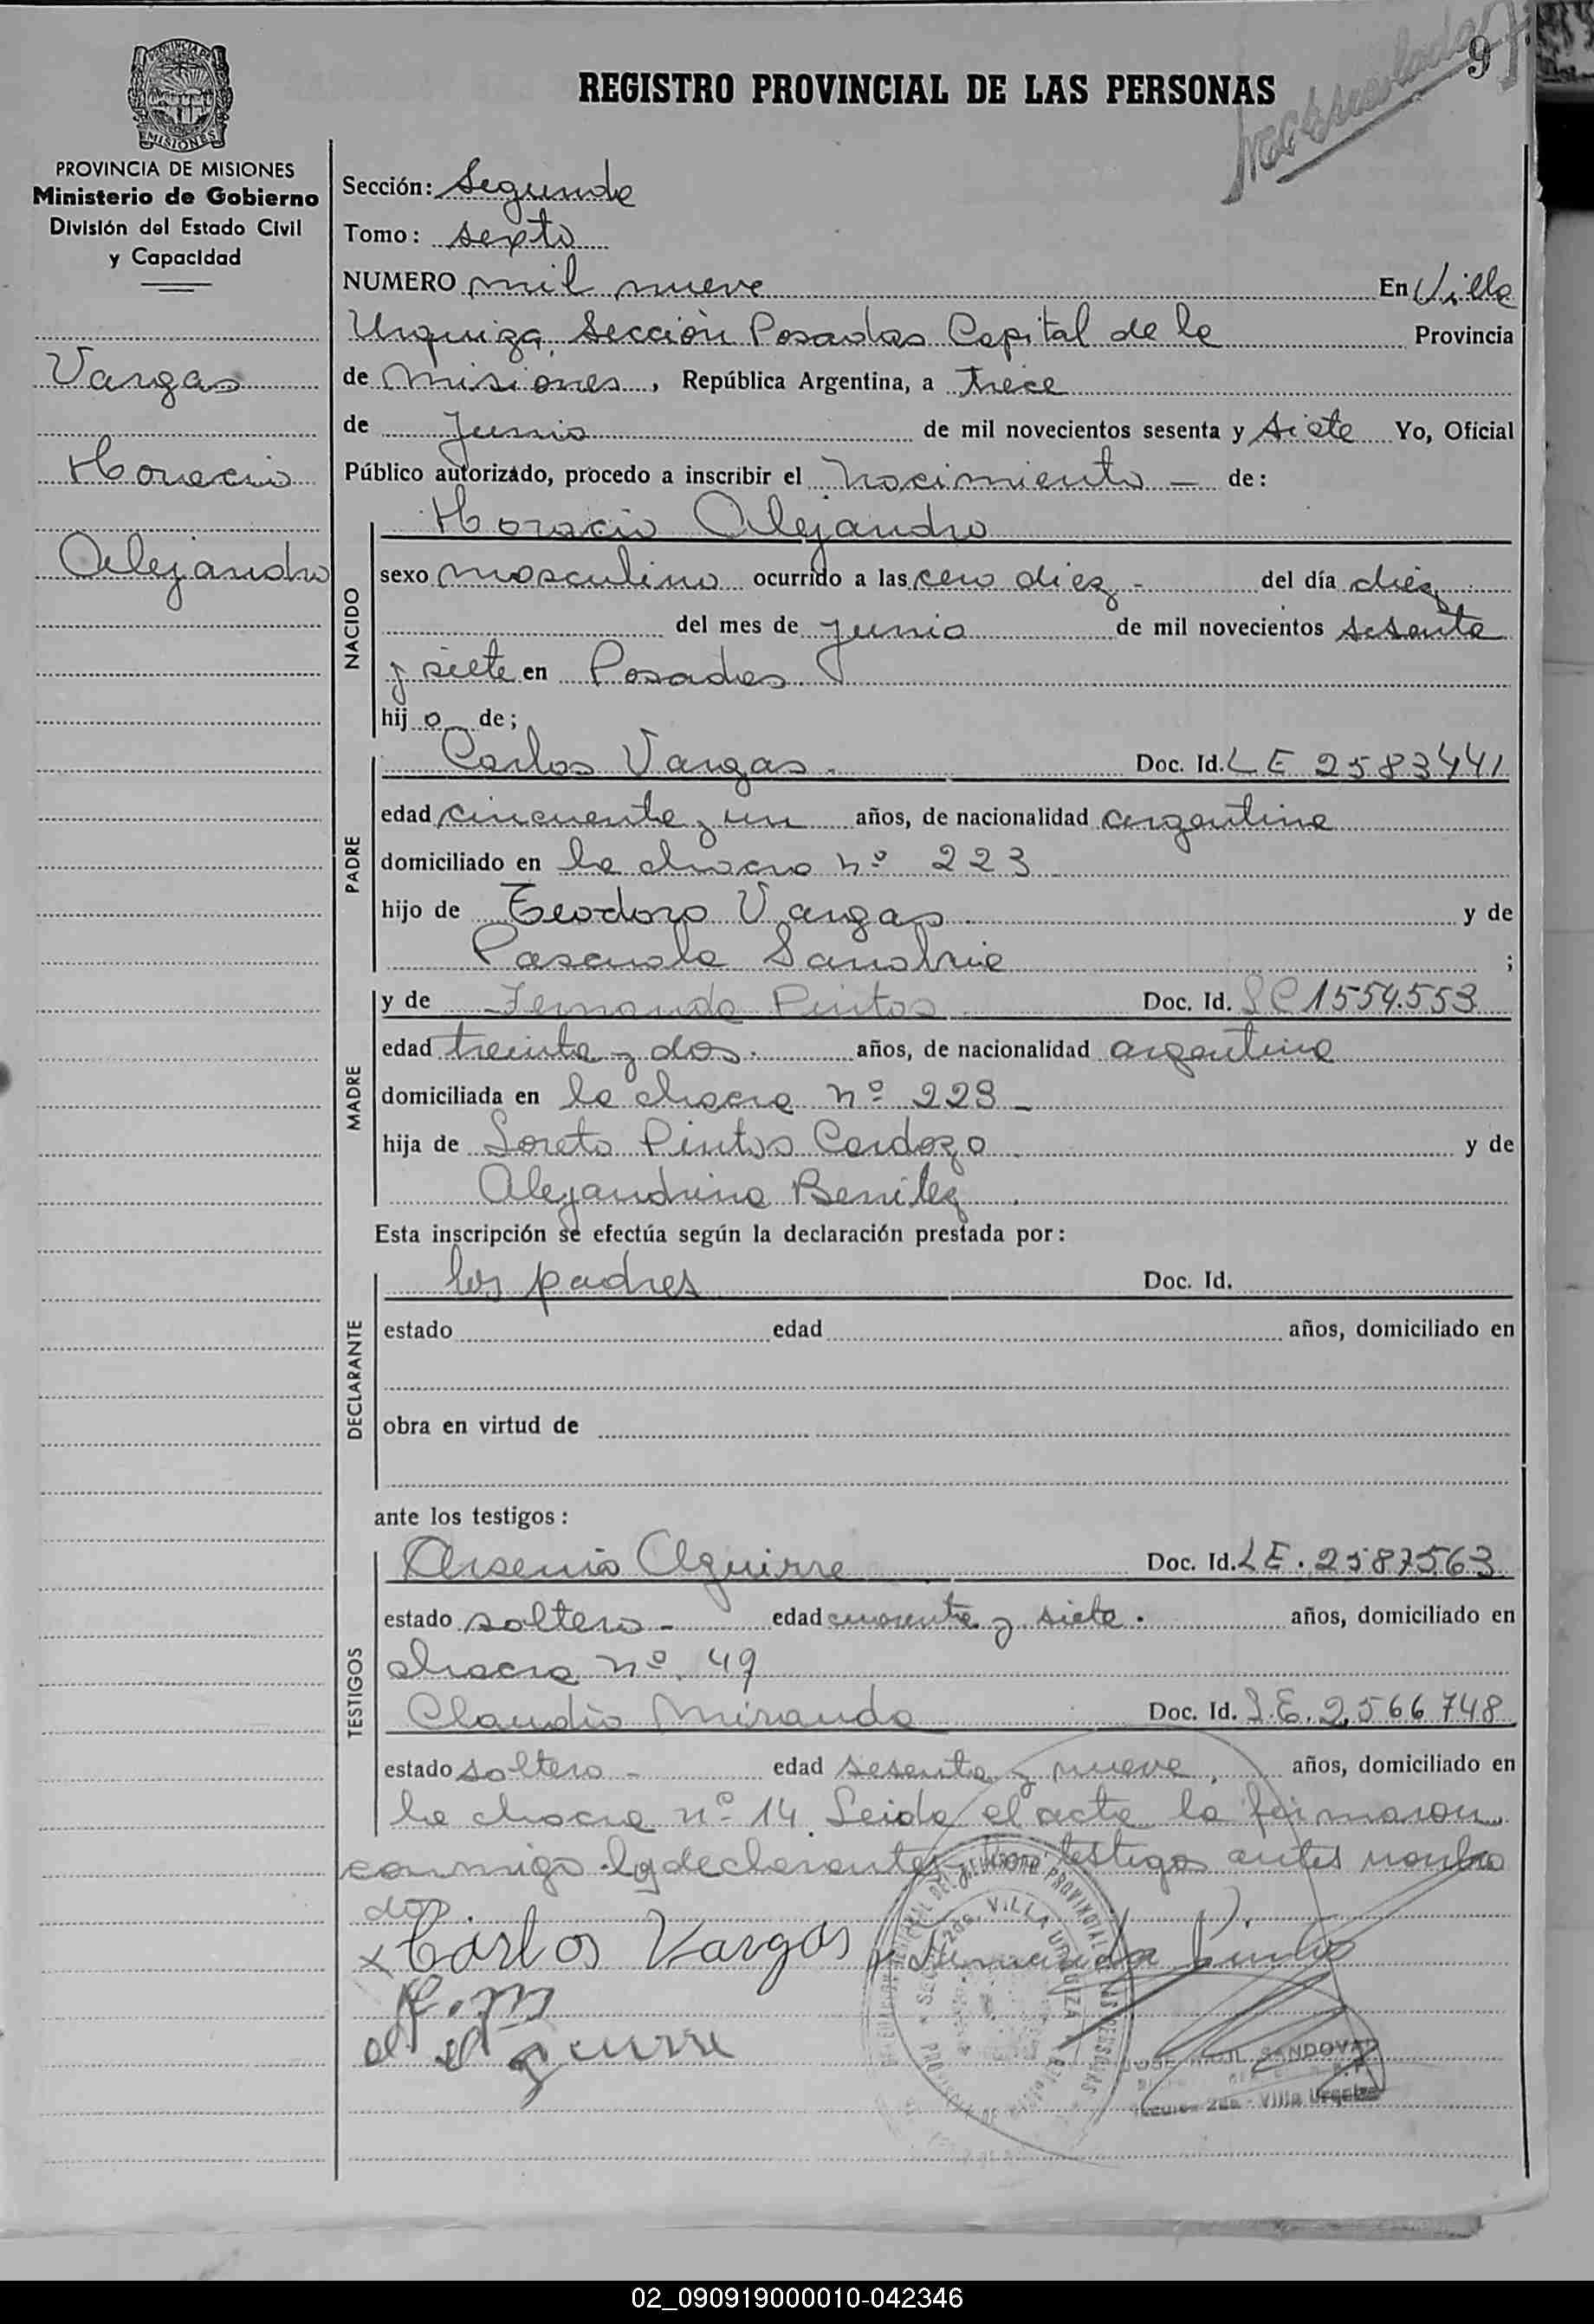 9
REGISTRO PROVINCIAL DE LAS PERSONAS
PROVINCIA DE MISIONES
Ministerio de Gobierno
División del Estado Civil
y Capacidad
Vargas
Horacio
Alejandro
Sección: Segunda
Tomo: sexto
NUMERO mil nueve En Villa
Urquiza, Sección Posadas Capital de la Provincia
de Misiones, República Argentina, a trece
de Junio de mil novecientos sesenta y siete Yo, Oficial
Público autorizado, procedo a inscribir el nacimiento - de:
NACIDO
Horacio Alejandro
sexo masculino ocurrido a las cero diez - del día diez
del mes de junio de mil novecientos sesenta
y siete en Posadas
hijo de;
PADRE
Carlos Vargas. Doc. Id. LE 2583441
edad cincuenta y un años, de nacionalidad argentina
domiciliado en la chacra nº 223
hijo de Teodoro Vargas y de
Pascuala Sanabria ;
MADRE
y de Fernanda Pintos Doc. Id. LC 1554.553
edad treinta y dos. años, de nacionalidad argentina
domiciliada en la chacra nº 223 -
hija de Loreto Pintos Cardozo y de
Alejandrina Benitez.
Esta inscripción se efectúa según la declaración prestada por:
DECLARANTE
los padres Doc. Id.
estado edad años, domiciliado en
obra en virtud de
ante los testigos:
TESTIGOS
Arsenio Aguirre Doc. Id. LE. 2587563
estado soltero - edad cuarenta y siete. años, domiciliado en
chacra nº 49
Claudio Miranda Doc. Id. L.E. 2,566748
estado soltero - edad sesenta y nueve, años, domiciliado en
la chacra nº 14. Leida el acta la firmaron
conmigo los declarantes y los testigos antes nombra
dos.
x Carlos Vargas x Fernanda Pintos
Aguirre
JOSE RAUL SANDOVAL
Sección 2da - Villa Urquiza
VILLA URQUIZA
02_090919000010-042346